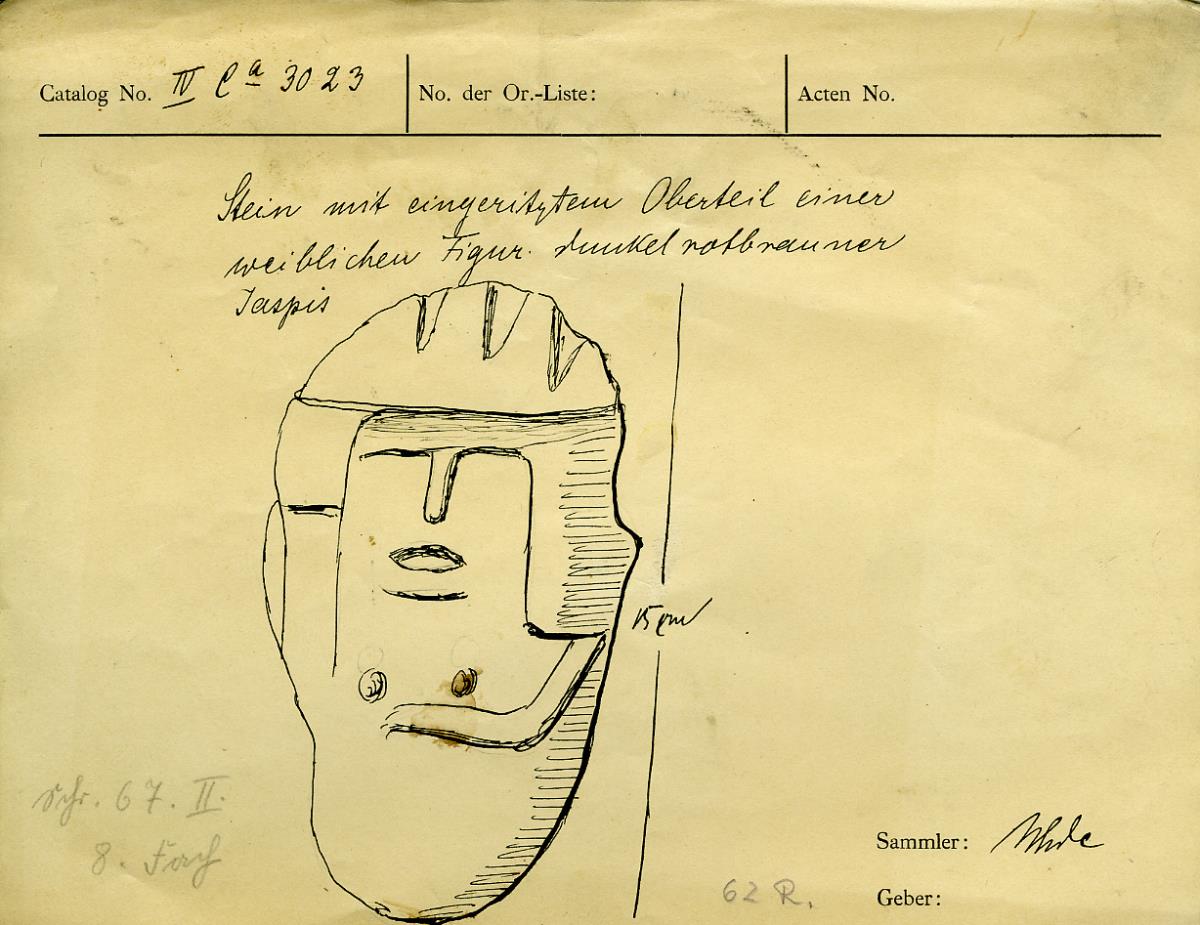 Catalog No. IV Ca 3023 No. der Or.-Liste: Acten No.
Stein mit eingeritztem Oberteil einer
weiblichen Figur. dunkelrotbrauner
Jaspis
15 cm
Schr. 67. II.
8. Fach
Sammler: Uhde
62 R.
Geber: